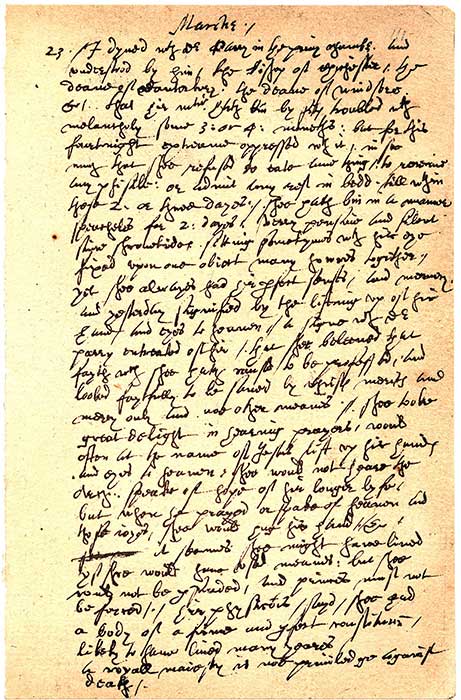 Marche /
23. I dyned wth Dr Parry in the privy chamber, and
understood by him, the Bishop of Chichester, the
deane of Canterbury, the deane of windsore
&c. that hir ma:tie hath bin by fits troubled wth
melancholy some 3: or 4: moneths: but for this
fourtnight extreame oppressed wth it, in soe
much that shee refused to eate anie thing, to receive
any phisike: or admit any rest in bedd till wthin
these 2. or three dayes // shee hath bin in a manner
speacheles for 2: dayes, verry pensive and silent
since shrovetide sitting sometymes wth hir eye
fixed upon one obiect many howres together,
yet shee alwayes had hir perfect senses, and memory,
and yesterday signified by the lifting up of hir
hand and eyes to heaven / a signe wch Dr
parry entreated of hir / that shee beleeved that
fayth wch shee hath caused to be professed, and
looked faythfully to be saved by christs merits and
mercy only and noe other meanes // Shee tooke
great delight in hearing prayers, would
often at the name of Jesus lift up hir handes
and eyes to heaven; shee would not heare the
speake of hope of hir longer lyfe,
but when he prayed or spake of heaven and
those ioyes, shee would hug his hand &c.
it seemes shee might have lived
yf shee would have used meanes: but shee
would not be perswaded, and princes must not
be forced // Hir phisicians sayd, shee had
a body of a firme and perfect constitution,
likely to have lived many yeares
A royall maiesty is noe priviledge against
death /.